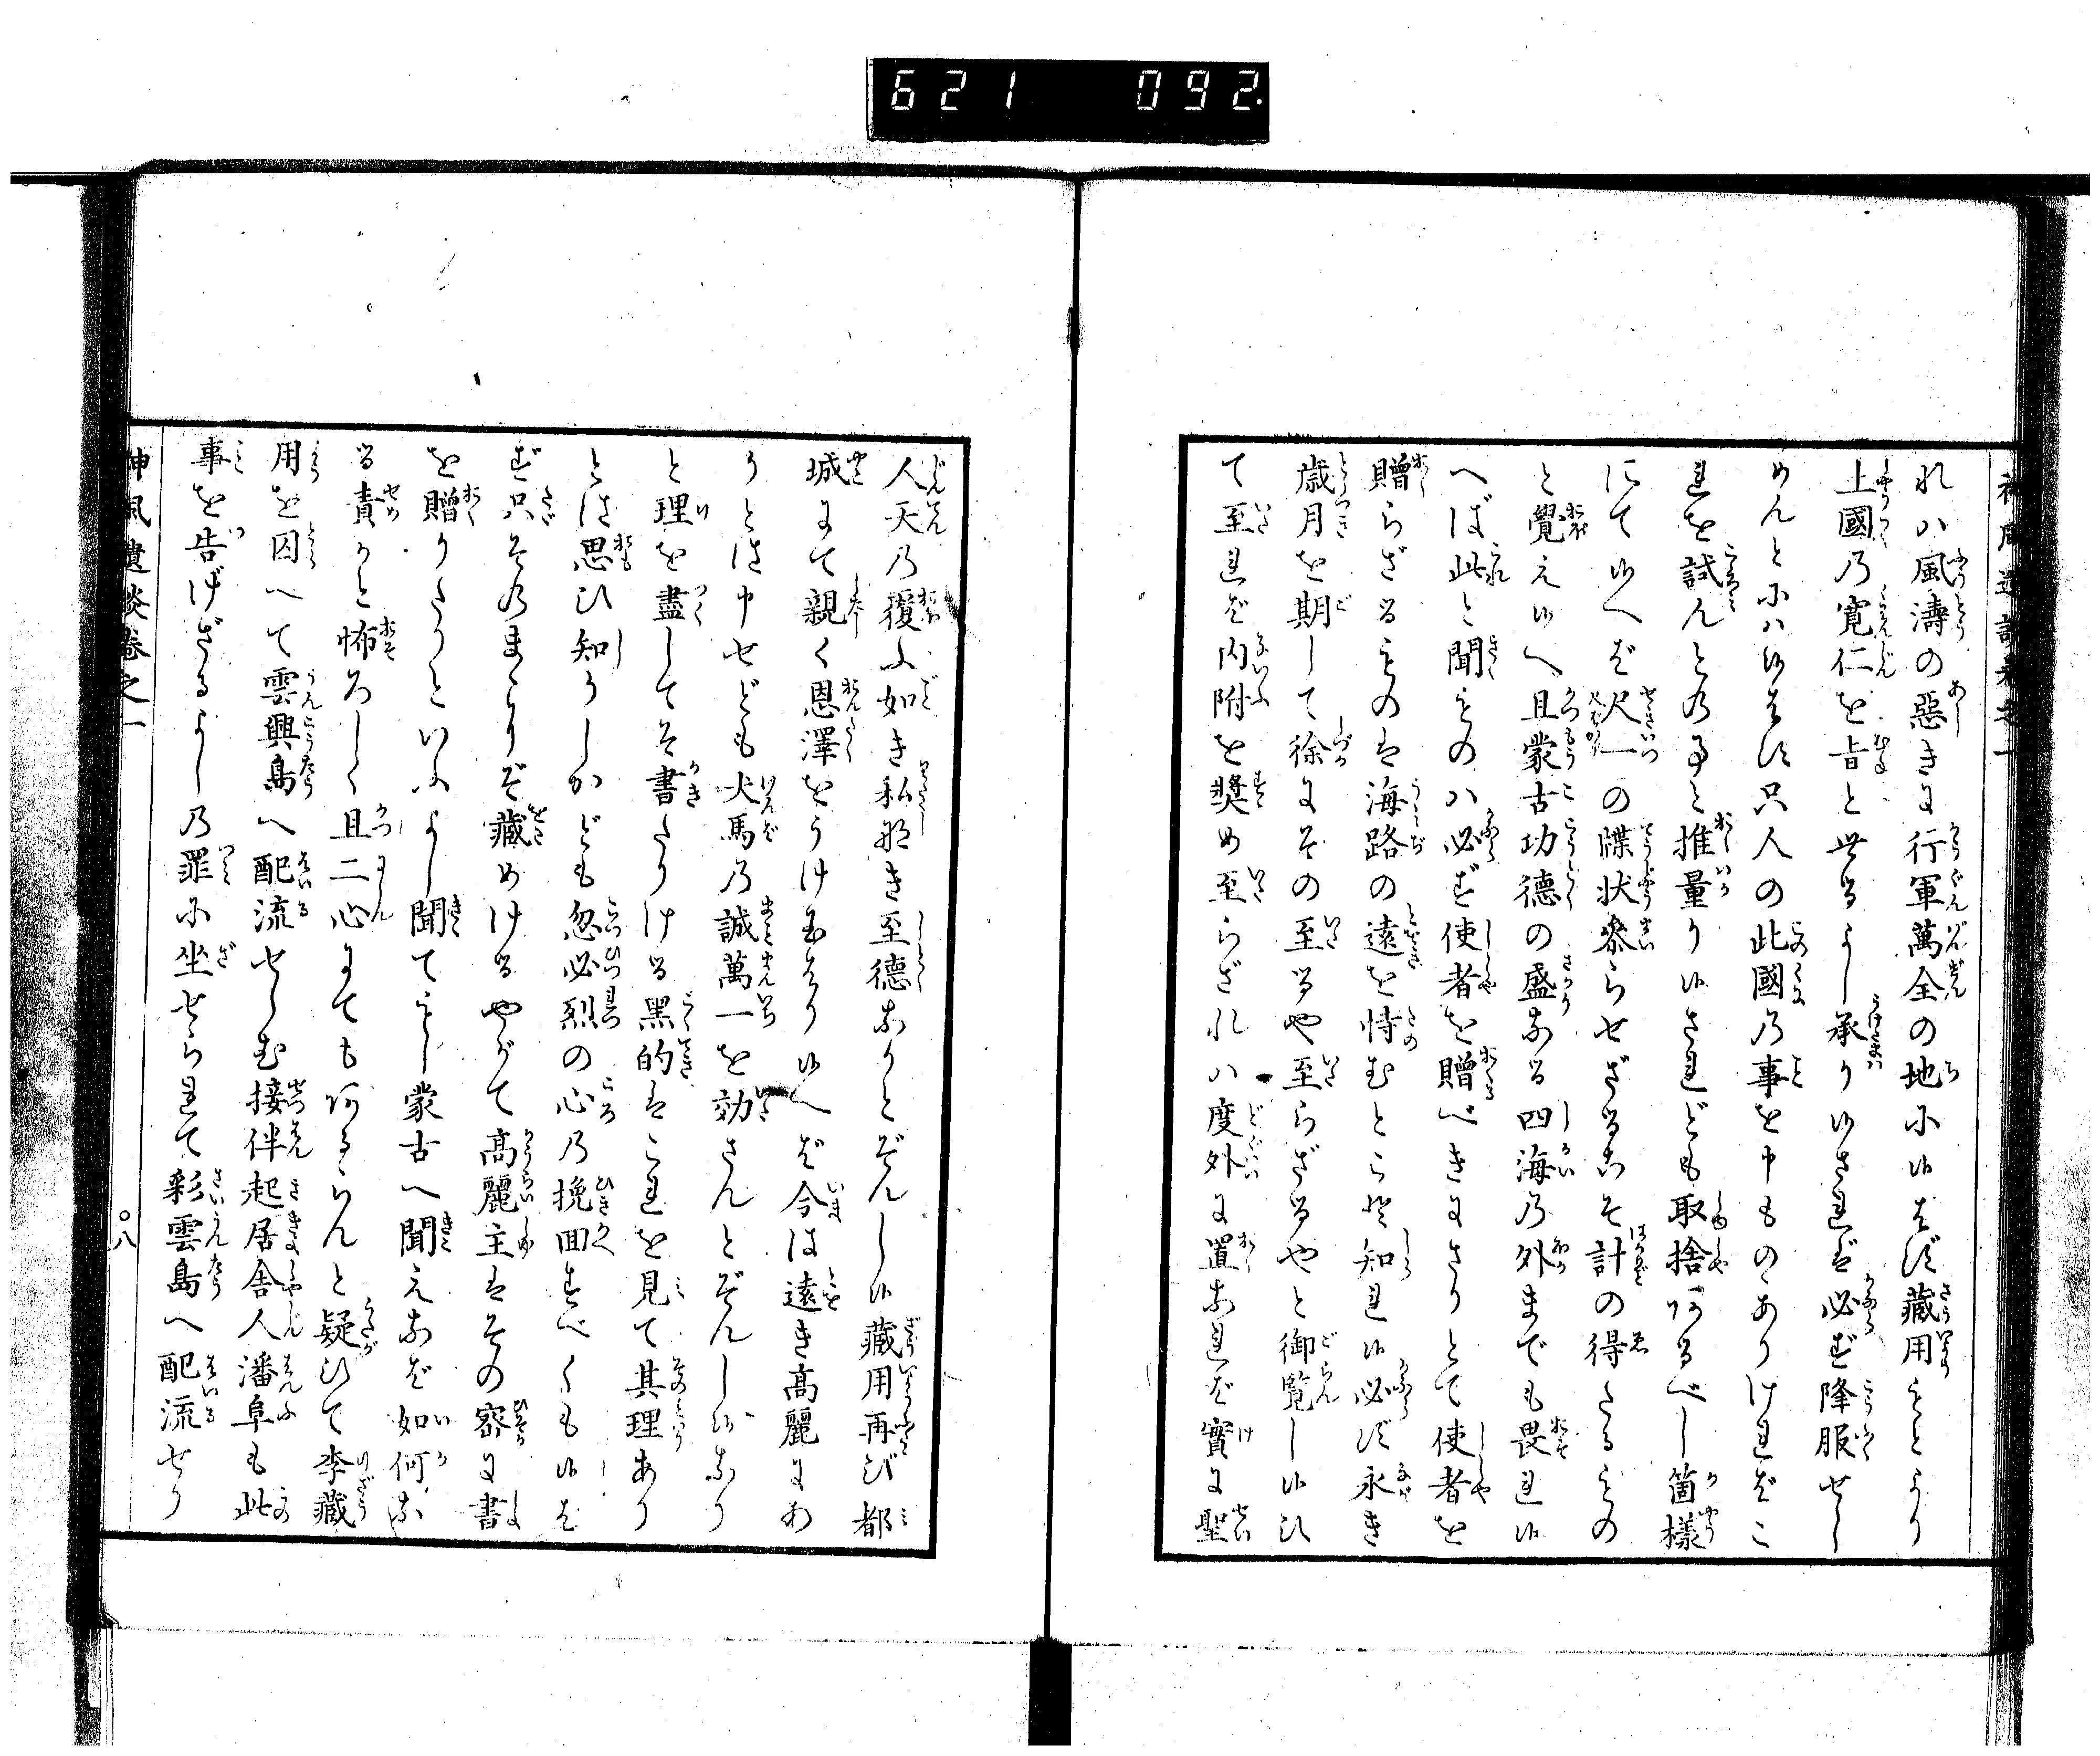 621 092.
神風遺談卷之一
れハ風濤の惡きに行軍萬全の地に候はず藏用もとより
上國乃寛仁を旨と世るよし承り候されば必ず降服せし
めんとにハ候はず只人の此國乃事を申ものゝありければこ
れを試んとの事と推量り候されども取捨あるべし箇樣
にて候へば尺一の牒状參らせざるこそ計の得たるもの
と覺え候へ且蒙古功德の盛なる四海乃外までも畏れ候
へば此と聞ものハ必ず使者を贈べきにさりとて使者を
贈らざるものは海路の遠を恃むとこそ知れ候必ず永き
歳月を期して徐にその至るや至らざるやと御覧し候ひ
て至れば内附を奬め至らざれハ度外に置なれば實に聖
人天乃覆ふ如き私なき至德なりとぞんし候藏用再び都
城にて親く恩澤をうけ玉はり候へば今は遠き高麗にあ
りとは申せども犬馬乃誠萬一を効さんとぞんし候なり
と理を盡してぞ書たりける黑的はこれを見て其理あり
とは思ひ知りしかども忽必烈の心乃挽回すべくも候は
ず只そのまゝにぞ藏めけるやがて高麗主はその密に書
を贈りたりといふよし聞てもし蒙古へ聞えなば如何な
る責りと怖ろしく且二心にてもあるらんと疑ひて李藏
用を囚へて雲興島へ配流せしむ接伴起居舎人潘阜も此
事を告げざるよし乃罪に坐せられて彩雲島へ配流せり
神風遺談卷之一
〇八